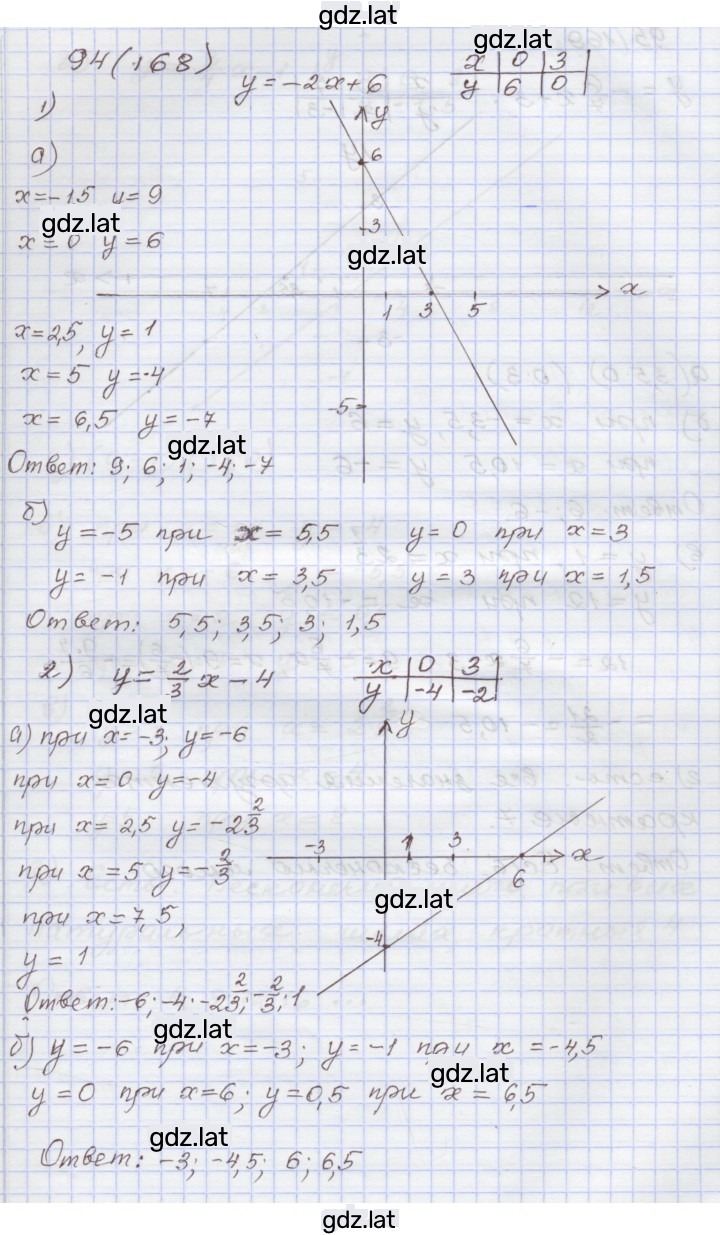 gdz.lat
94(168)
gdz.lat
y=-2x+6
x | 0 | 3
y | 6 | 0
1)
а)
x=-1.5 y=9
gdz.lat
x=0 y=6
y
6
3
gdz.lat
1 3 5 x
-5
x=2,5, y=1
x=5 y=-4
x=6,5 y=-7
gdz.lat
Ответ: 9; 6; 1; -4; -7
б)
y=-5 при x=5,5 y=0 при x=3
y=-1 при x=3,5 y=3 при x=1,5
Ответ: 5,5; 3,5; 3; 1,5
2) y=2/3 x-4
x | 0 | 3
y | -4 | -2
gdz.lat
а) при x=-3; y=-6
при x=0 y=-4
при x=2,5 y=-2 2/3
при x=5 y=-2/3
при x=7,5,
y=1
y
-3 1 3 6 x
gdz.lat
-4
Ответ: -6; -4; -2 2/3; -2/3; 1
gdz.lat
б) y=-6 при x=-3; y=-1 при x=-4,5
gdz.lat
y=0 при x=6; y=0,5 при x=6,5
gdz.lat
Ответ: -3; -4,5; 6; 6,5
gdz.lat